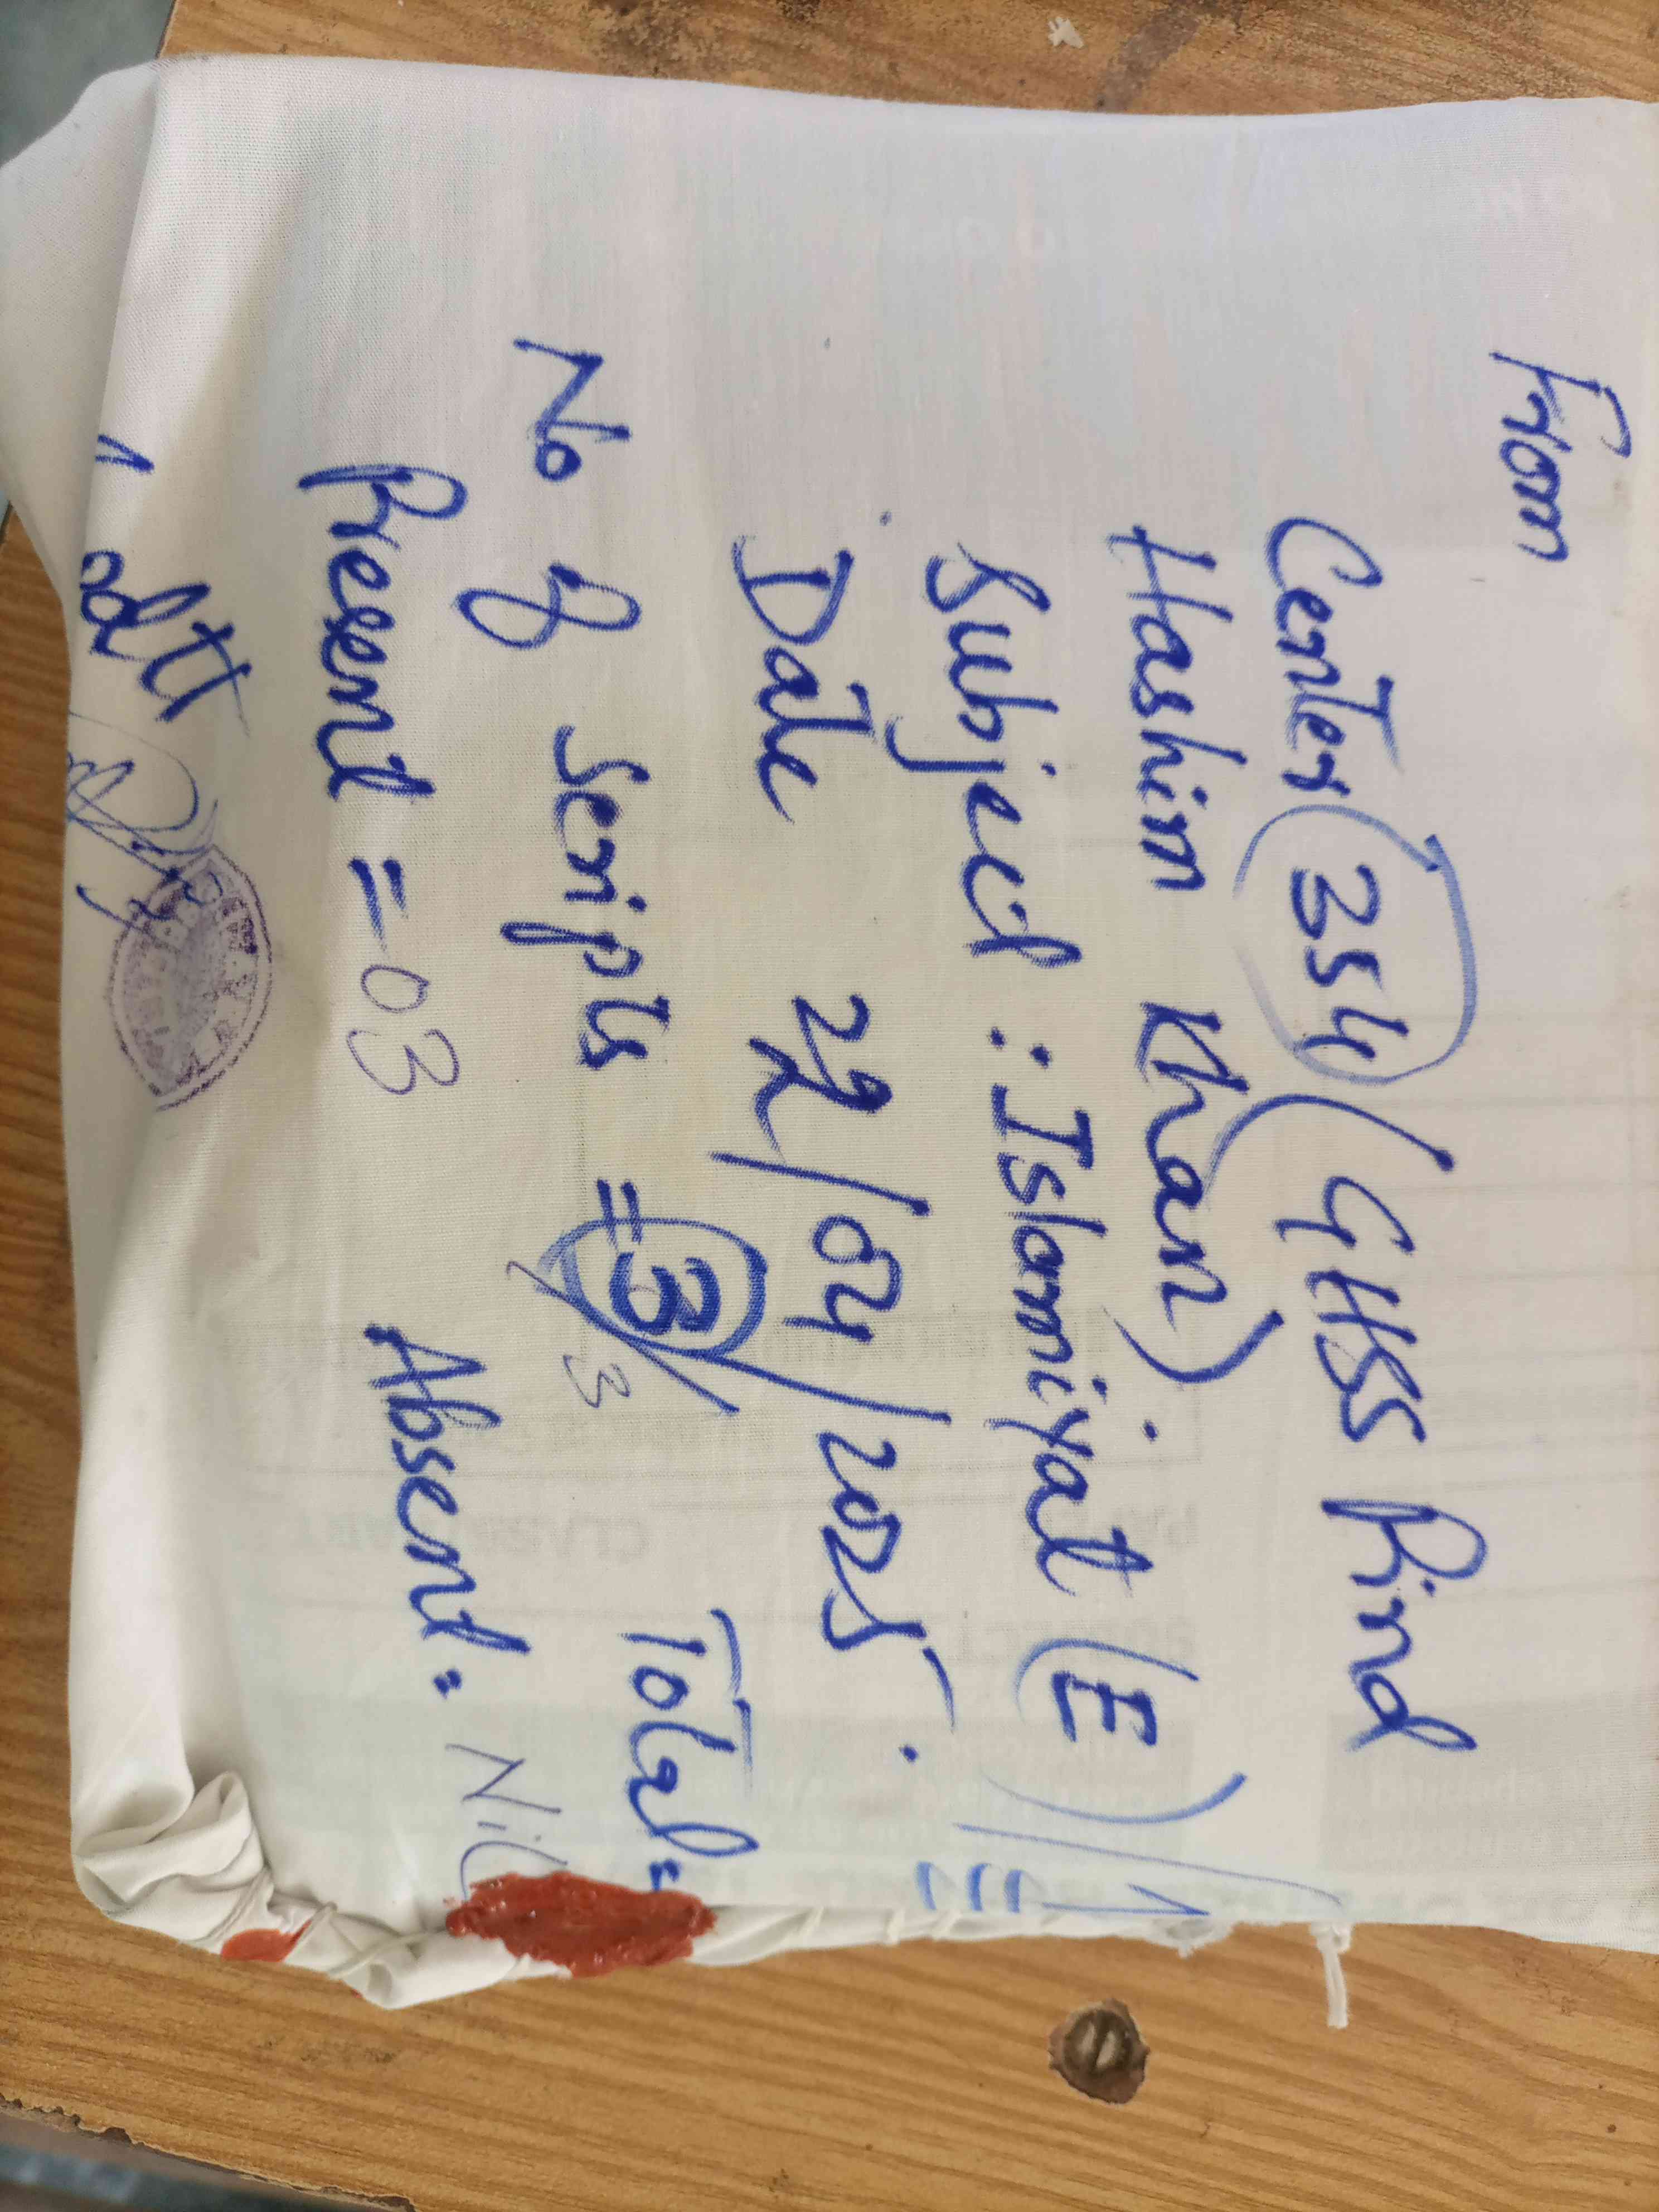 From
Center 354 (GHSS Pind
Hashim Khan)
Subject : Islamiyat (E)
Date 22/04/2025.
No of Scripts = 3 Total =
3
Present = 03 Absent = Nil